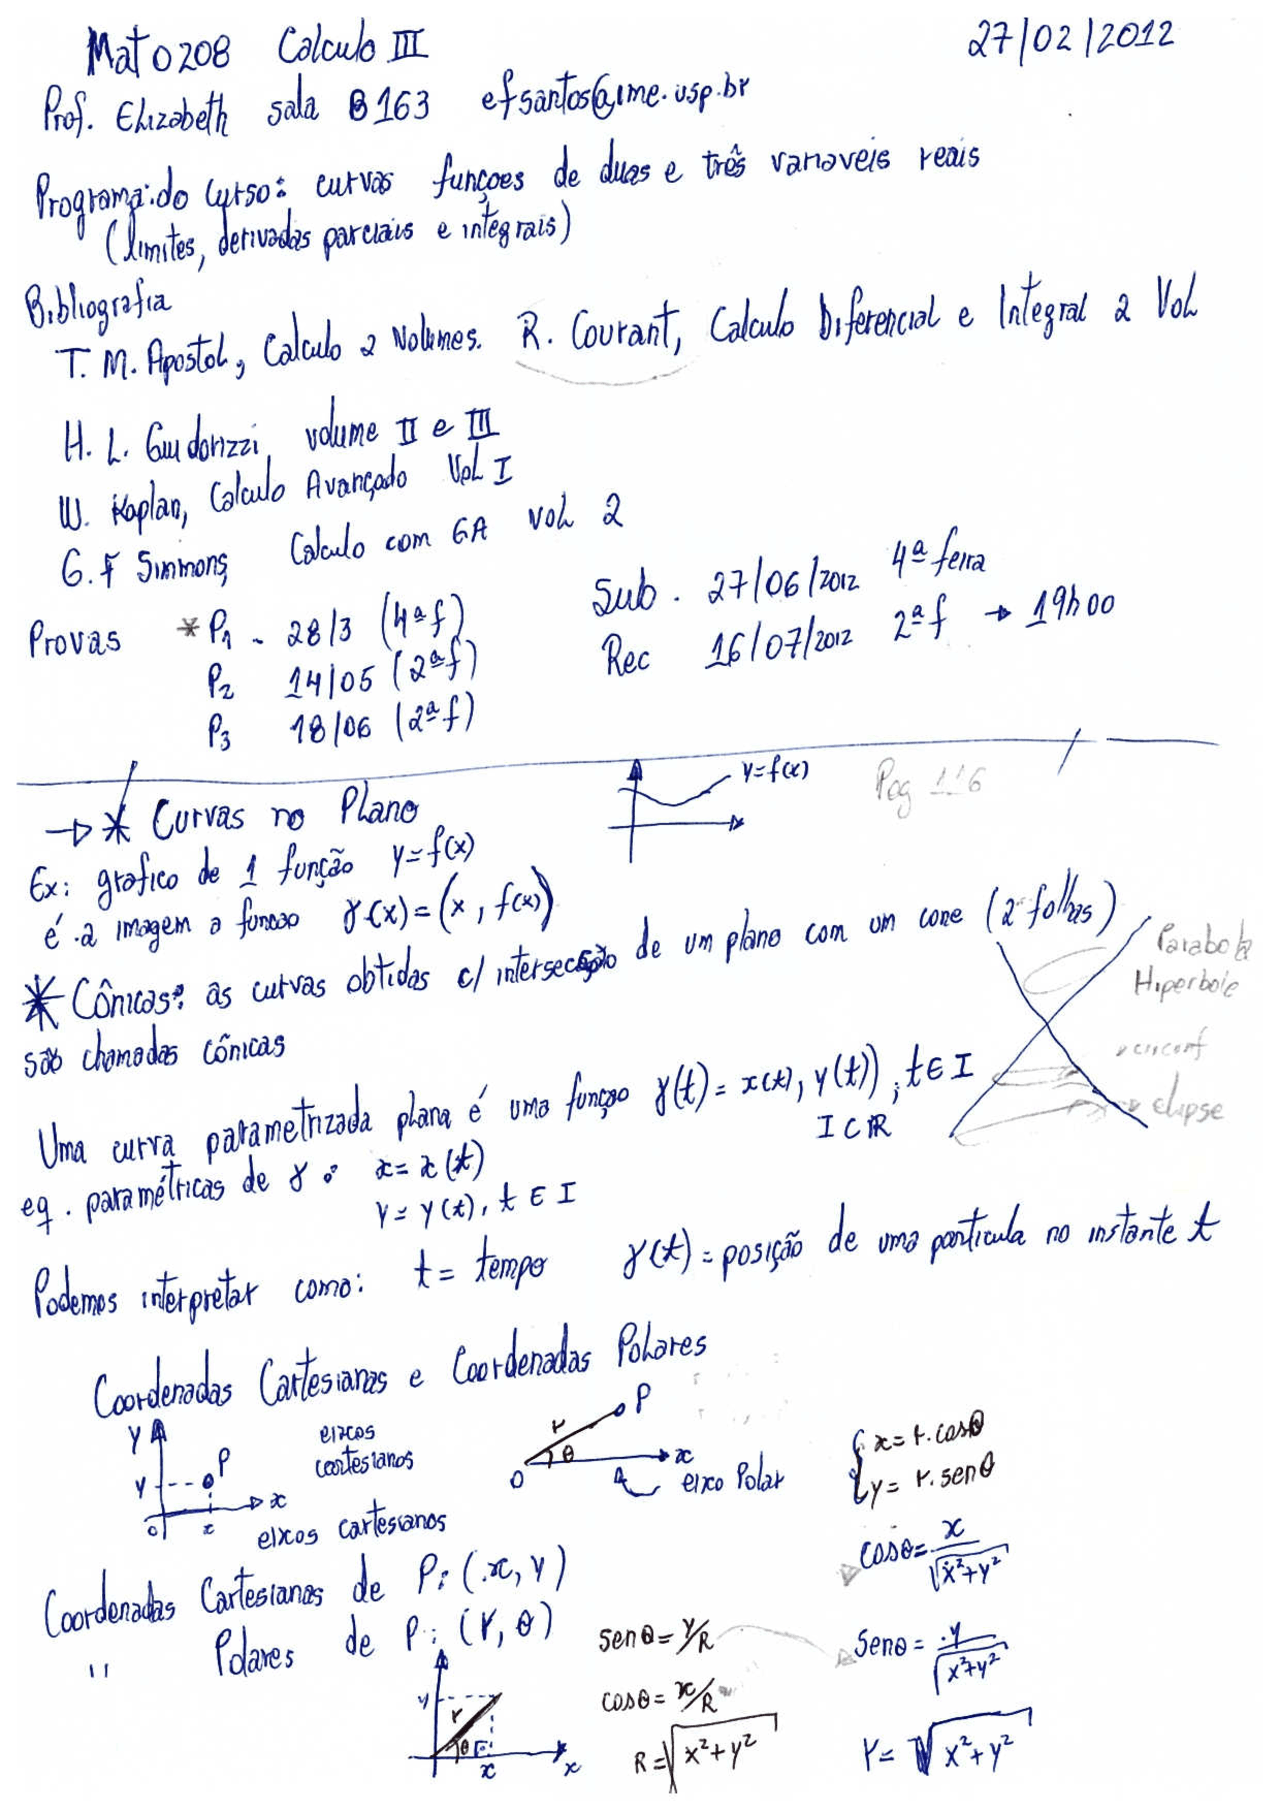 Mat 0208 Calculo III 27/02/2012
Prof. Elizabeth sala B163 efsantos@ime.usp.br
Programa: do curso: curvas funçoes de duas e três variaveis reais
(limites, derivadas parciais e integrais)
Bibliografia
T. M. Apostol, Calculo 2 Volumes. R. Courant, Calculo Diferencial e Integral 2 Vol
H. L. Guidorizzi, volume II e III
W. Kaplan, Calculo Avançado Vol I
G. F Simmons, Calculo com GA vol 2
Provas * P1 - 28/3 (4ª f) Sub. 27/06/2012 4ª feira
P2 14/05 (2ª f) Rec 16/07/2012 2ª f → 19h00
P3 18/06 (2ª f)
y=f(x) Pag 116
→ * Curvas no Plano
Ex: grafico de 1 função y=f(x)
é a imagem a funcao γ(x)=(x, f(x))
* Cônicas: as curvas obtidas c/ intersecção de um plano com um cone (2 folhas)
são chamadas cônicas
Parabola
Hiperbole
circunf
elipse
Uma curva parametrizada plana é uma função γ(t)= x(t), y(t)), t∈I
I⊂R
eq. paramétricas de γ: x= x(t)
y= y(t), t∈I
Podemos interpretar como: t= tempo γ(t)= posição de uma particula no instante t
Coordenadas Cartesianas e Coordenadas Polares
y P y 0 x x
eixos
cartesianos
eixos cartesianos
r P θ 0 x
eixo Polar
x= r.cosθ
y= r.senθ
cosθ= x/√x²+y²
Coordenadas Cartesianas de P: (x, y)
" Polares de P: (r, θ)
senθ= y/R senθ= y/√x²+y²
cosθ= x/R
R=√x²+y² r= √x²+y²
y r θ x x